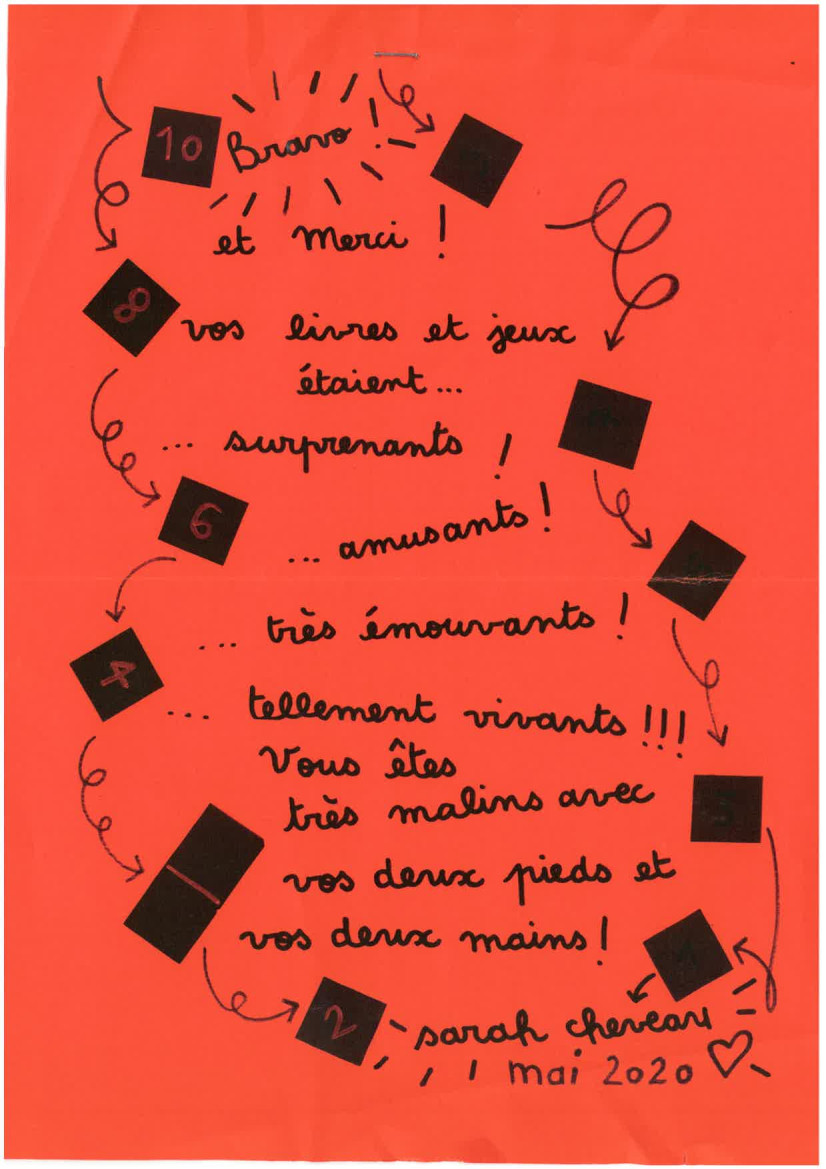 10 Bravo !
et Merci !
8
vos livres et jeux
étaient...
... surprenants !
6
... amusants !
... très émouvants !
4
... tellement vivants !!!
Vous êtes
très malins avec
3
vos deux pieds et
vos deux mains !
1
2
sarah cheveau
mai 2020